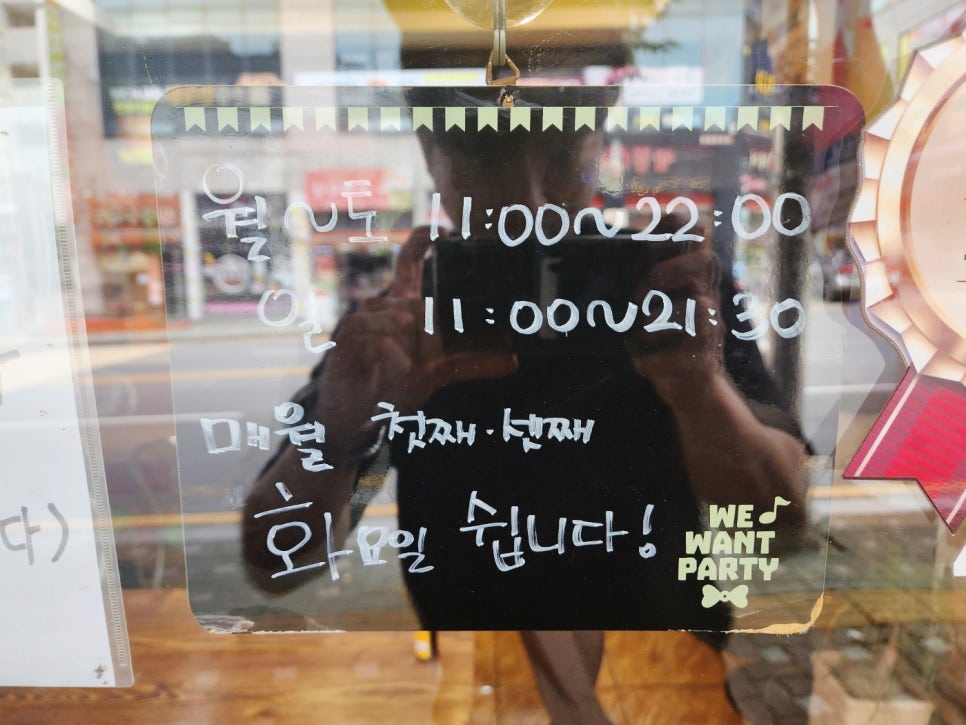 월~토 11:00~22:00
일 11:00~21:30
매월 첫째·셋째
화요일 쉽니다!
WE
WANT
PARTY
다)